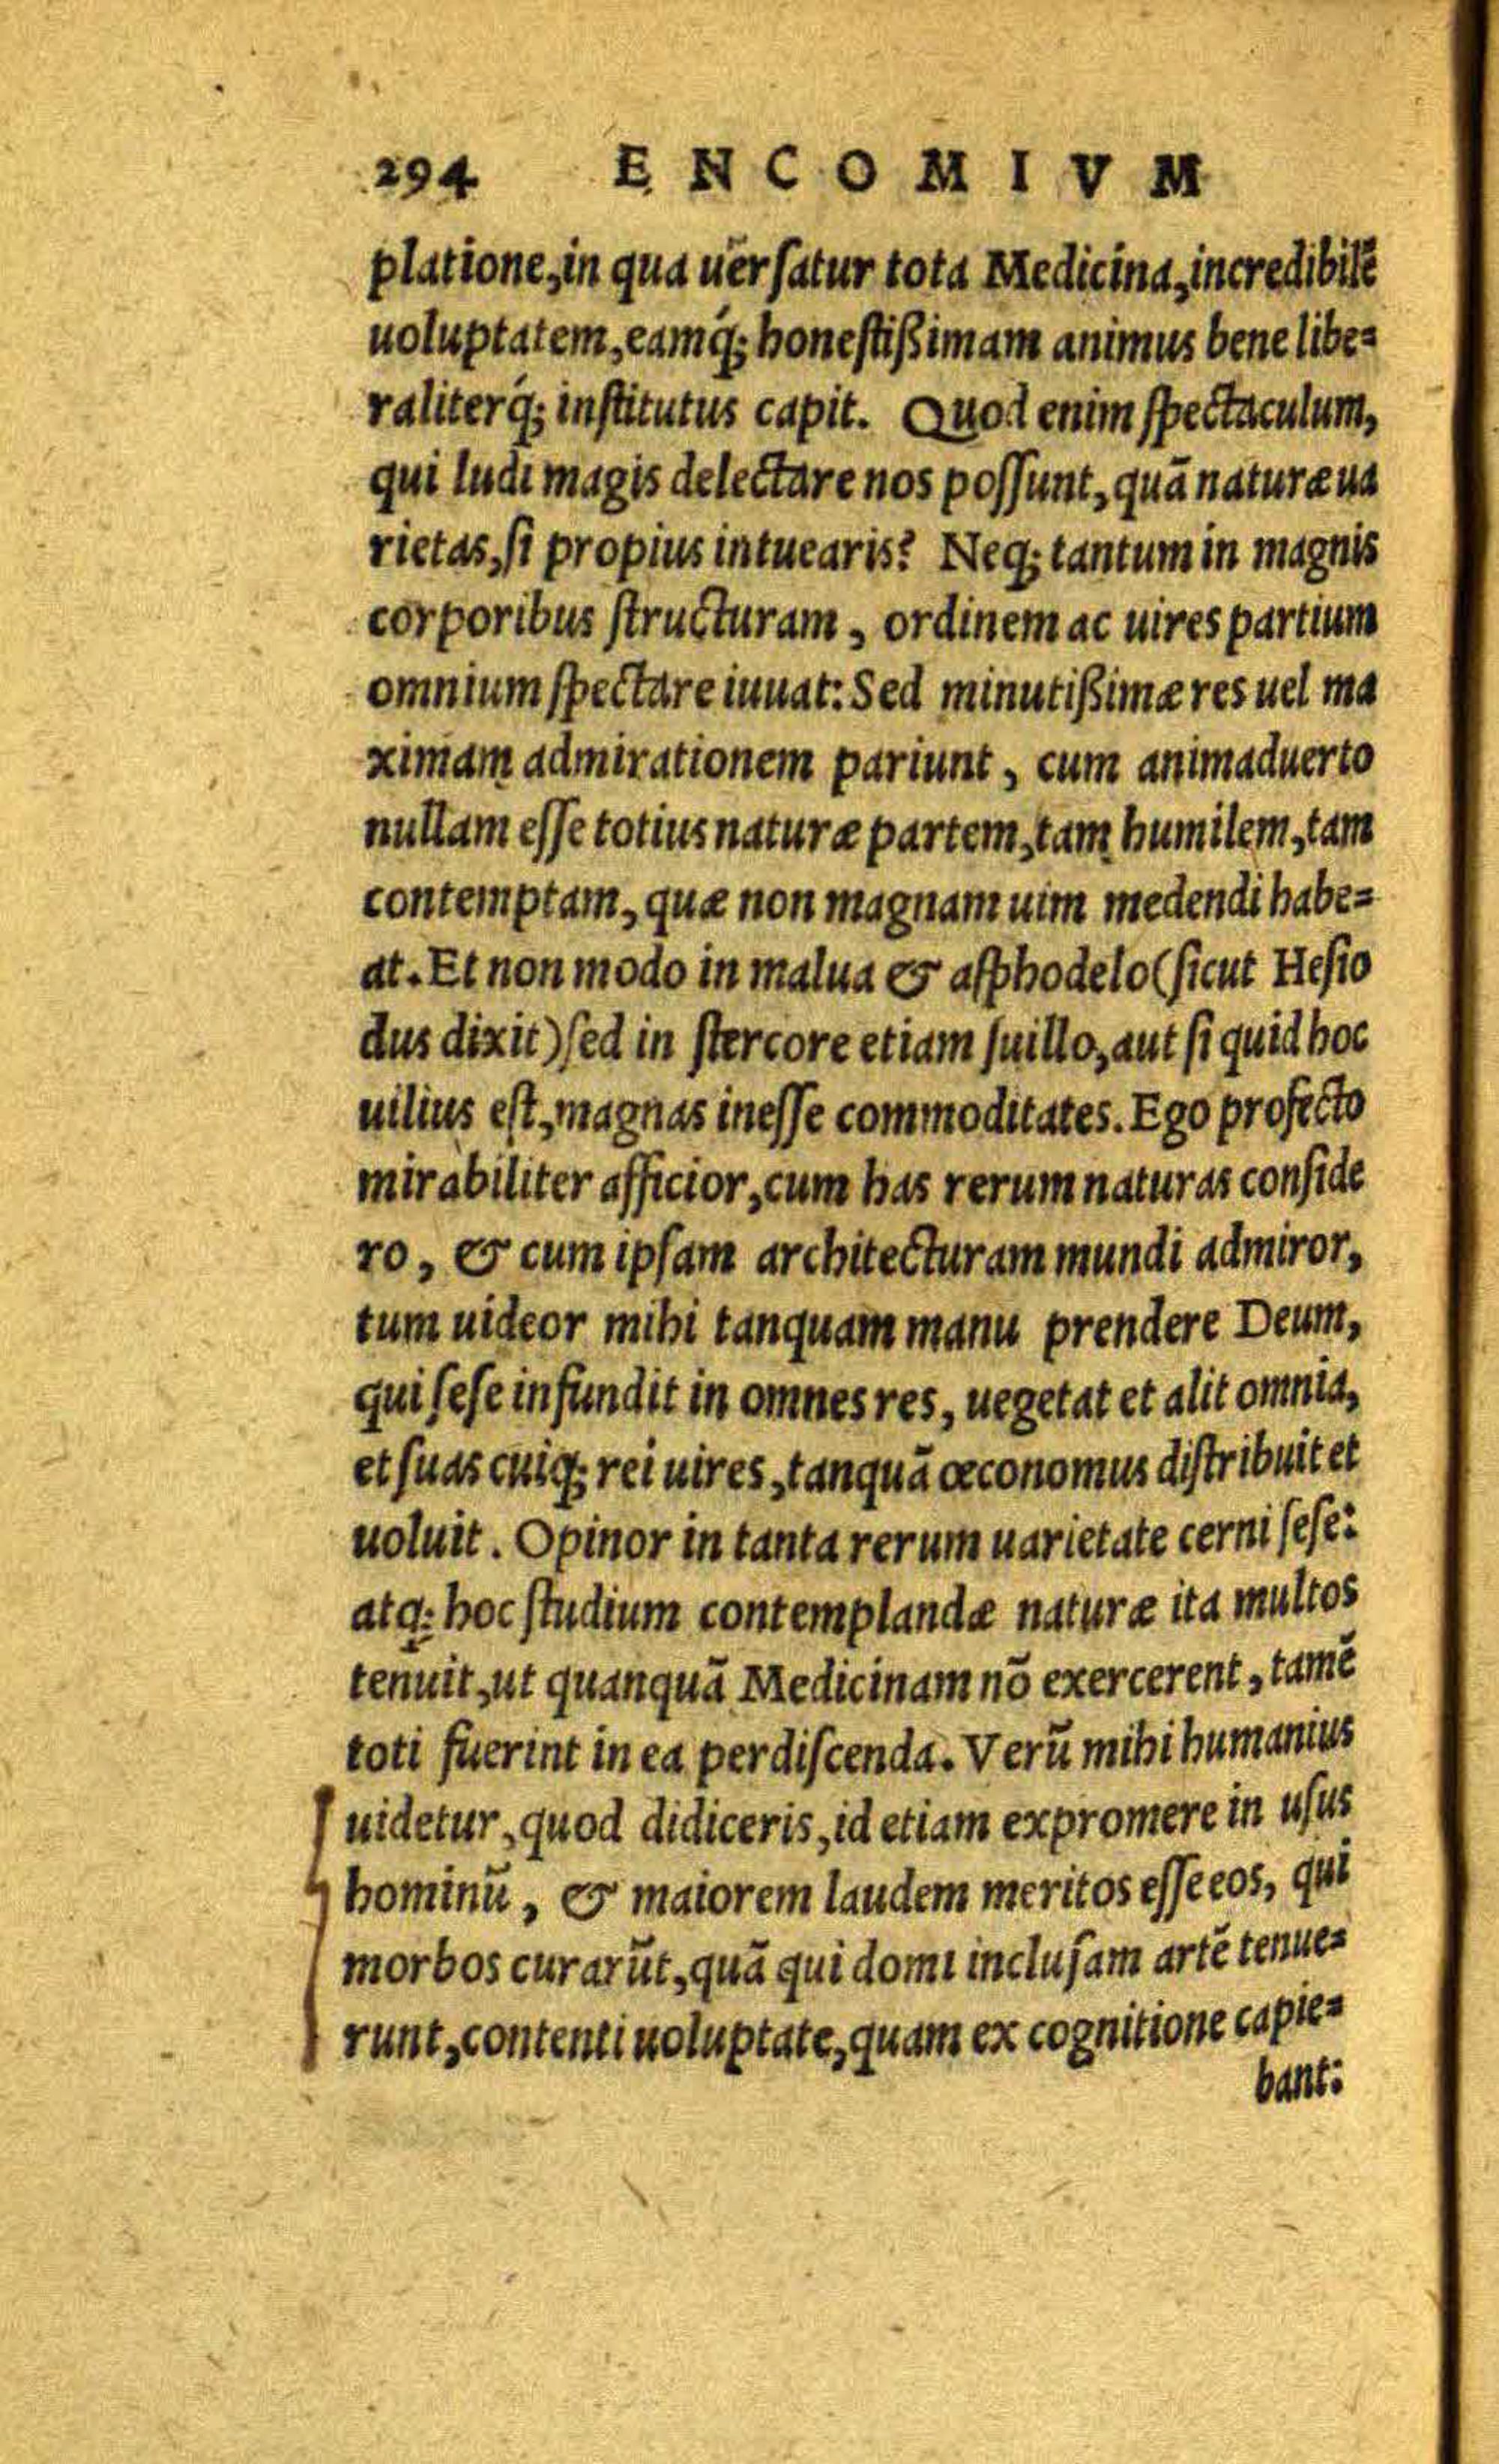 294 ENCOMIVM
platione,in qua uersatur tota Medicina,incredibilē
uoluptatem,eamq́; honestißimam animus bene libe=
raliterq́; institutus capit. Quod enim spectaculum,
qui ludi magis delectare nos possunt,quā naturæ ua
rietas,si propius intuearis? Neq; tantum in magnis
corporibus structuram, ordinem ac uires partium
omnium spectare iuuat: Sed minutißimæ res uel ma
ximam admirationem pariunt, cum animaduerto
nullam esse totius naturæ partem,tam humilem,tam
contemptam, quæ non magnam uim medendi habe=
at. Et non modo in malua & asphodelo (sicut Hesio
dus dixit) sed in stercore etiam suillo,aut si quid hoc
uilius est,magnas inesse commoditates. Ego profecto
mirabiliter afficior,cum has rerum naturas conside
ro, & cum ipsam architecturam mundi admiror,
tum uideor mihi tanquam manu prendere Deum,
qui sese infundit in omnes res, uegetat et alit omnia,
et suas cuiq; rei uires,tanquā œconomus distribuit et
uoluit. Opinor in tanta rerum uarietate cerni sese:
atq; hoc studium contemplandæ naturæ ita multos
tenuit,ut quanquā Medicinam nō exercerent, tamē
toti fuerint in ea perdiscenda. Verū mihi humanius
uidetur,quod didiceris,id etiam expromere in usus
hominū, & maiorem laudem meritos esse eos, qui
morbos curarūt,quā qui domi inclusam artē tenue=
runt,contenti uoluptate,quam ex cognitione capie=
bant: